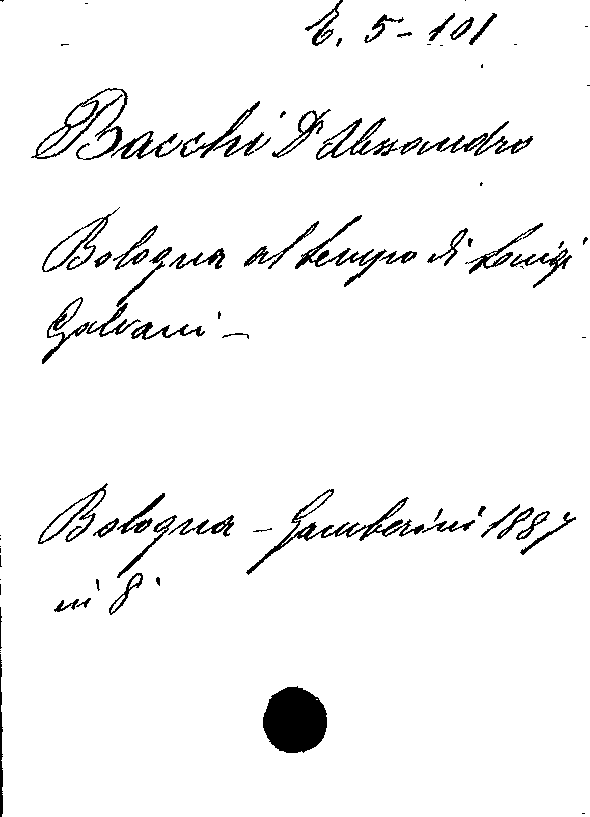 E. 5-101
Bacchi Dr Alessandro
Bologna al tempo di Luigi
Galvani -
Bologna - Gamberini 1887
in 8°